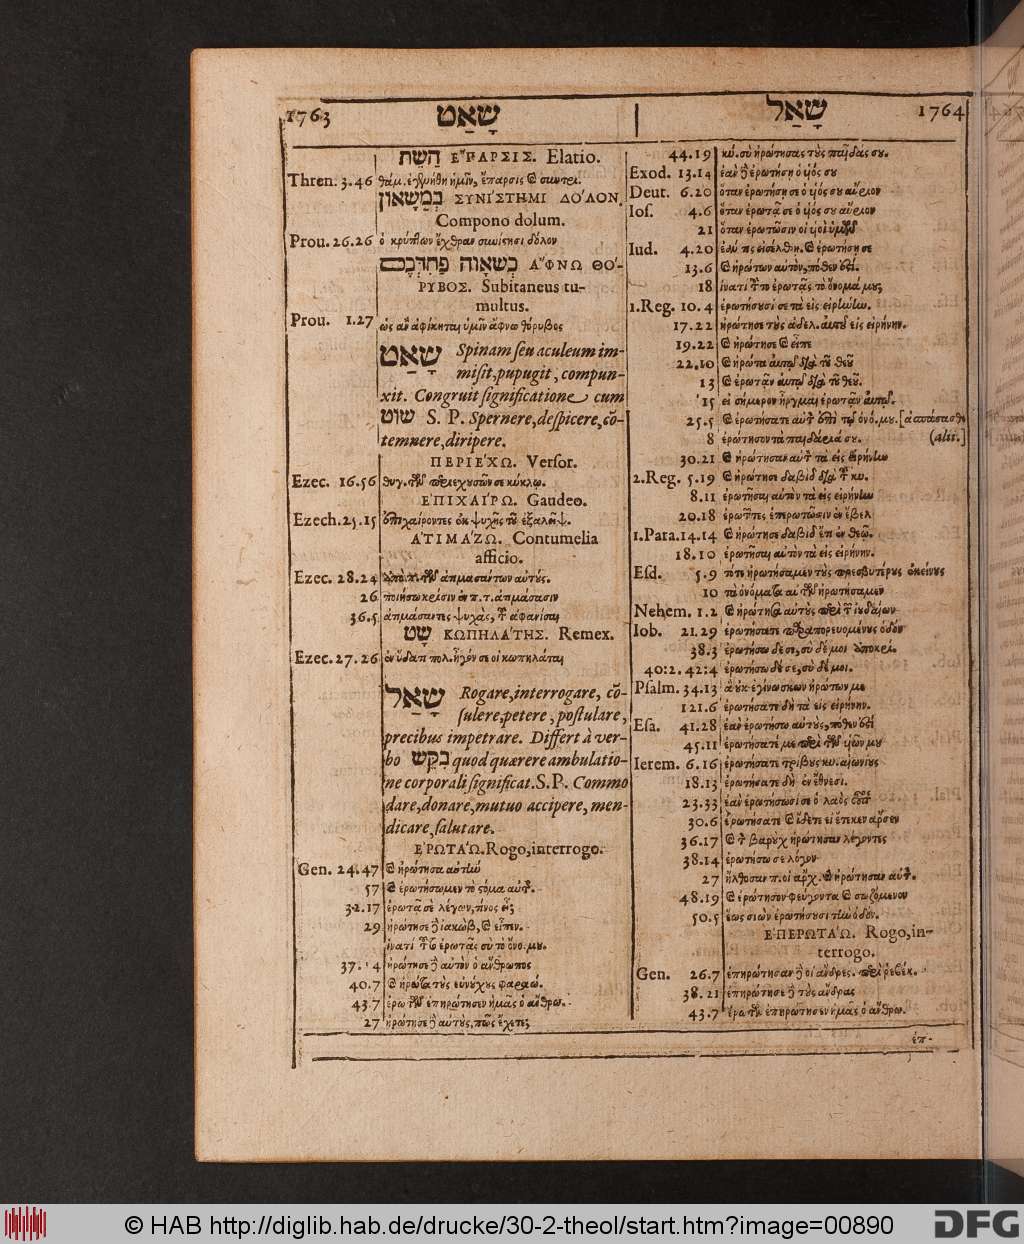 1763 שָׁאַט
הַשֵּׁת ἜΠΑΡΣΙΣ. Elatio.
Thren. 3.46 θάμ. ἐγενήθη ἡμῖν, ἔπαρσις
בְּמַשָּׁאוֹן ΣΥΝΊΣΤΗΜΙ ΔΌΛΟΝ.
Compono dolum.
Prou. 26.26 ὁ κρύπτων ἔχθραν συνίστησι δόλον
ἌΦΝΩ ΘΌ-
ΡΥΒΟΣ. Subitaneus tu-
multus.
Prou. 1.27 ὡς ἂν ἀφίκηται ὑμῖν ἄφνω θόρυβος
שָׁאַט Spinam ſeu aculeum im-
miſit, pupugit, compun-
xit. Congruit ſignificatione cum
שׁוּט S. P. Spernere, deſpicere, cõ-
temnere, diripere.
ΠΕΡΙΈΧΩ. Verſor.
Ezec. 16.56 κύκλῳ.
ἘΠΙΧΑΊΡΩ. Gaudeo.
Ezech. 25.15 ἐπιχαίροντες ἐκ ψυχῆς τοῦ ἐξαλεῖψ.
ἈΤΙΜΆΖΩ. Contumelia
afficio.
Ezec. 28.24 ἀτιμασάντων αὐτούς.
26 ποιήσω κρίσιν ἐν π. τ. ἀτιμάσασιν
36.5 ἀτιμάσαντες ψυχὰς, τ ἀφανίσαι
שָׁט ΚΩΠΗΛΆΤΗΣ. Remex.
Ezec. 27.26 ἐν ὕδατι πολ. ἦγόν σε οἱ κωπηλάται
שָׁאַל Rogare, interrogare, cõ-
ſulere, petere, poſtulare,
precibus impetrare. Differt à ver-
bo בִּקֵּשׁ quod quærere ambulatio-
ne corporali ſignificat. S.P. Commo
dare, donare, mutuo accipere, men-
dicare, ſalutare.
ἘΡΩΤΆΩ. Rogo, interrogo.
Gen. 24.47 ϗ ἠρώτησα αὐτὴν
57 ϗ ἐρωτήσωμεν τὸ στόμα αὐτ.
32.17 ἐρωτᾷ σὲ λέγων, τίνος εἶ;
29 ἠρώτησε δὲ ἰακὼβ, ϗ εἶπεν.
ἱνατί τοῦτο ἐρωτᾷς σὺ τὸ ὄνο. μου.
37. 4 ἠρώτησε δὲ αὐτὸν ὁ ἄνθρωπος
40.7 ϗ ἠρώτα τοὺς εὐνούχους φαραώ.
43.7 ἐρωτῶν ἐπηρώτησεν ἡμᾶς ὁ ἄνθρω.
27 ἠρώτησε δὲ αὐτοὺς, πῶς ἔχετε;
שָׁאַל 1764
44.19 κύ. σὺ ἠρώτησας τοὺς παῖδας σου.
Exod. 13.14 ἐὰν δὲ ἐρωτήσῃ ὁ υἱός σου
Deut. 6.20 ὅταν ἐρωτήσῃ σε ὁ υἱός σου αὔριον
Ioſ. 4.6 ὅταν ἐρωτᾷ σε ὁ υἱός σου αὔριον
21 ὅταν ἐρωτῶσιν οἱ υἱοὶ ὑμῶν
Iud. 4.20 ἐάν τις εἰσέλθῃ, ϗ ἐρωτήσῃ σε
13.6 ϗ ἠρώτων αὐτὸν, πόθεν ἐστί.
18 ἱνατί τοῦτο ἐρωτᾷς τὸ ὄνομά μου;
1.Reg. 10.4 ἐρωτήσουσί σε τὰ εἰς εἰρήνην.
17.22 ἠρώτησε τοὺς ἀδελ. αὐτοῦ εἰς εἰρήνην.
19.22 ϗ ἠρώτησε ϗ εἶπε
22.10 ϗ ἠρώτα αὐτῷ διὰ τοῦ θεοῦ
13 ϗ ἐρωτᾶν αὐτῷ διὰ τοῦ θεοῦ.
15 εἰ σήμερον ἦργμαι ἐρωτᾶν αὐτῷ.
25.5 ϗ ἐρωτήσατε αὐτὸν ἐπὶ τῷ ὀνό. μου.
8 ἐρώτησον τὰ παιδάριά σου. (Alit.]
30.21 ϗ ἠρώτησαν αὐτὸν τὰ εἰς εἰρήνην
2.Reg. 5.19 ϗ ἠρώτησε δαβὶδ διὰ τ κυ.
8.11 ἐρωτῆσαι αὐτὸν τὰ εἰς εἰρήνην
20.18 ἐρωτῶντες ἐπερωτῶσιν ἐν ἄβελ
1.Para. 14.14 ϗ ἠρώτησε δαβὶδ ἔτι ἐν θεῷ.
18.10 ἐρωτῆσαι αὐτὸν τὰ εἰς εἰρήνην.
Eſd. 5.9 τότε ἠρωτήσαμεν τοὺς πρεσβυτέρους ἐκείνους
10 τὰ ὀνόματα αὐτῶν ἠρωτήσαμεν
Nehem. 1.2 ϗ ἠρώτησα αὐτοὺς περὶ τ ἰουδαίων
Iob. 21.29 ἐρωτήσατε παραπορευομένους ὁδὸν
38.3 ἐρωτήσω δέ σε, σὺ δέ μοι ἀποκρί.
40:2. 42:4 ἐρωτήσω δέ σε, σὺ δέ μοι.
Pſalm. 34.13 ἃ οὐκ ἐγίνωσκον ἠρώτων με
121.6 ἐρωτήσατε δὴ τὰ εἰς εἰρήνην.
Eſa. 41.28 ἐὰν ἐρωτήσω αὐτοὺς, πόθεν ἐστὲ
45.11 ἐρωτήσατέ με περὶ τῶν υἱῶν μου
Ierem. 6.16 ἐρωτήσατε τρίβους κυ. αἰωνίους
18.13 ἐρωτήσατε δὴ ἐν ἔθνεσι.
23.33 ἐὰν ἐρωτήσωσί σε ὁ λαὸς οὗτος
30.6 ἐρωτήσατε ϗ ἴδετε εἰ ἔτεκεν ἄρσεν
36.17 ϗ τ βαροὺχ ἠρώτησαν λέγοντες
38.14 ἐρωτήσω σε λόγον
27 ἤλθοσαν π. οἱ ἀρχ. ϗ ἠρώτησαν αὐτ.
48.19 ϗ ἐρώτησον φεύγοντα ϗ σωζόμενον
50.5 ἕως σιὼν ἐρωτήσουσι τὴν ὁδόν.
ἘΠΕΡΩΤΆΩ. Rogo, in-
terrogo.
Gen. 26.7 ἐπηρώτησαν δὲ οἱ ἄνδρες. περὶ ῥεβέκ.
38.21 ἐπηρώτησε δὲ τοὺς ἄνδρας
43.7 ἐρωτῶν ἐπηρώτησεν ἡμᾶς ὁ ἄνθρω.
ἐπ-
© HAB http://diglib.hab.de/drucke/30-2-theol/start.htm?image=00890
DFG